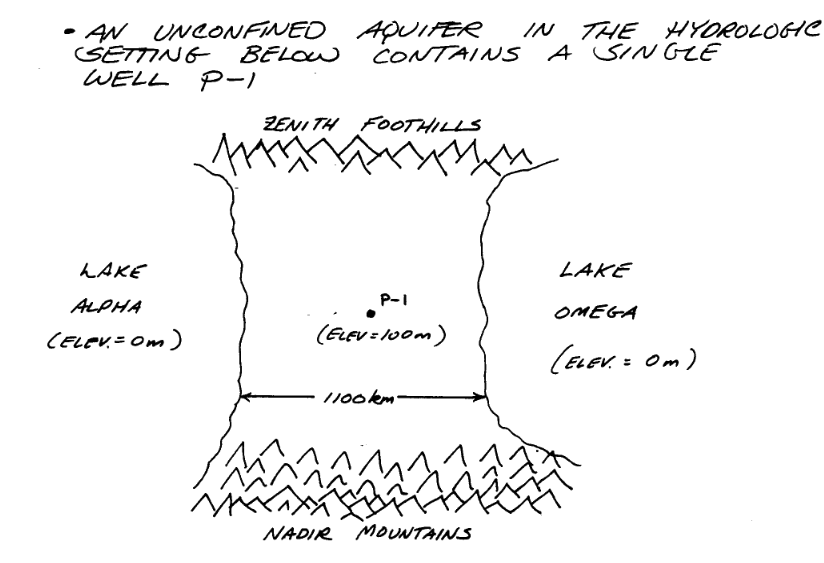 • AN UNCONFINED AQUIFER IN THE HYDROLOGIC
SETTING BELOW CONTAINS A SINGLE
WELL P-1
ZENITH FOOTHILLS
LAKE
ALPHA
(ELEV. = 0m)
P-1
(ELEV=100m)
LAKE
OMEGA
(ELEV. = 0m)
1100km
NADIR MOUNTAINS